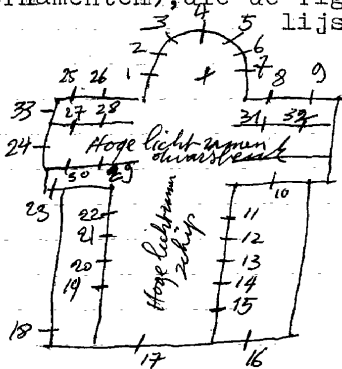 ornamenten, die de fig
lijs
3 4 5
2 6
1 7 8 9
25 26
33 27 28 31 32
24 Hoge lichtramen
dwarsbeuk
30 29
23 10
22 11
21 12
20 13
19 14
15
Hoge lichtramen
schip
18
17 16